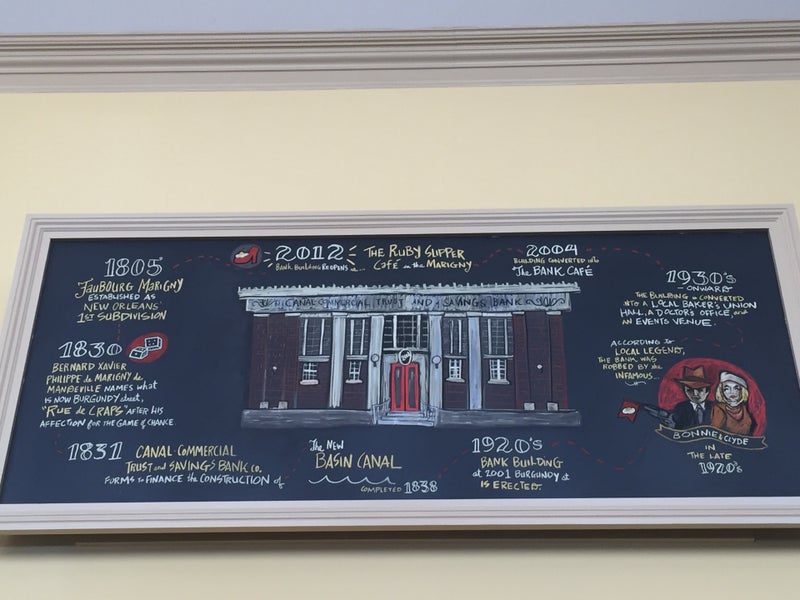 1805
FAUBOURG MARIGNY
ESTABLISHED AS
NEW ORLEANS'
1ST SUBDIVISION
1830
BERNARD XAVIER
PHILIPPE de MARIGNY de
MANDEVILLE NAMES what
is NOW BURGUNDY street,
"RUE de CRAPS" AFTER HIS
AFFECTION FOR THE GAME of CHANCE
1831 CANAL-COMMERCIAL
TRUST and SAVINGS BANK CO.
FORMS to FINANCE the CONSTRUCTION of
The NEW
BASIN CANAL
COMPLETED 1838
1920's
BANK BUILDING
at 2001 BURGUNDY st
IS ERECTED.
BONNIE & CLYDE
IN
THE LATE
1920's
ACCORDING to
LOCAL LEGEND,
THE BANK WAS
ROBBED BY the
INFAMOUS...
1930's
ONWARD
THE BUILDING is CONVERTED
INTO A LOCAL BAKER'S UNION
HALL, A DOCTOR'S OFFICE, and
AN EVENTS VENUE.
2004
BUILDING CONVERTED into
The BANK CAFÉ
2012
BANK BUILDING REOPENS as...
THE RUBY SLIPPER
CAFÉ in the MARIGNY
CANAL-COMMERCIAL TRUST AND SAVINGS BANK